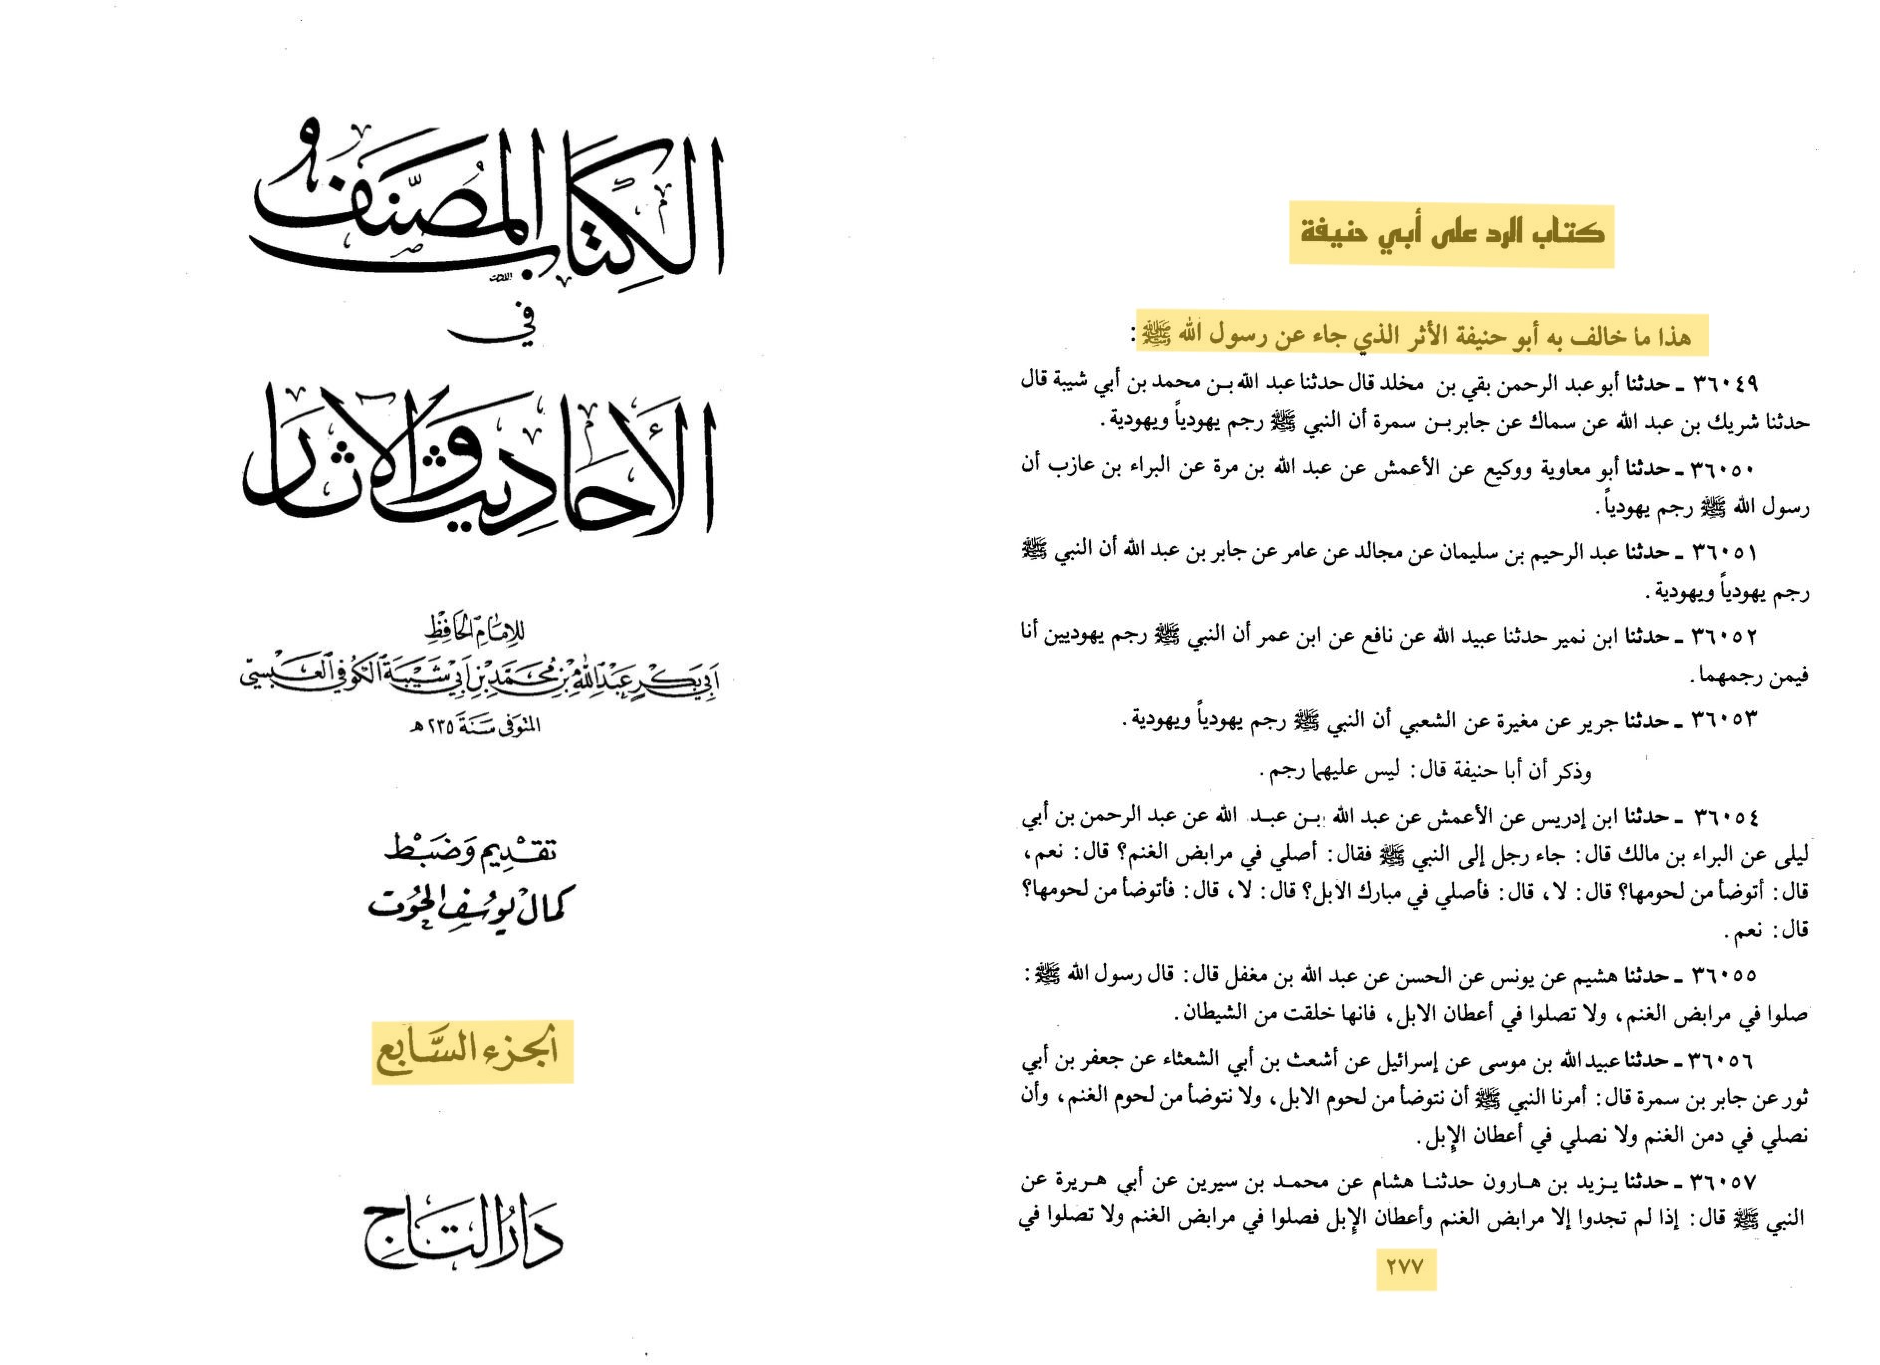 الكتاب المصنف
في
الأحاديث والآثار
للإمام الحافظ
أبي بكر عبد الله بن محمد بن أبي شيبة الكوفي العبسي
المتوفى سنة ٢٣٥ هـ
تقديم وضبط
كمال يوسف الحوت
الجزء السابع
دار التاج
كتاب الرد على أبي حنيفة
هذا ما خالف به أبو حنيفة الأثر الذي جاء عن رسول الله ﷺ:
٣٦٠٤٩ ـ حدثنا أبو عبد الرحمن بقي بن مخلد قال حدثنا عبد الله بن محمد بن أبي شيبة قال
حدثنا شريك بن عبد الله عن سماك عن جابر بن سمرة أن النبي ﷺ رجم يهودياً ويهودية.
٣٦٠٥٠ ـ حدثنا أبو معاوية ووكيع عن الأعمش عن عبد الله بن مرة عن البراء بن عازب أن
رسول الله ﷺ رجم يهودياً.
٣٦٠٥١ ـ حدثنا عبد الرحيم بن سليمان عن مجالد عن عامر عن جابر بن عبد الله أن النبي ﷺ
رجم يهودياً ويهودية.
٣٦٠٥٢ ـ حدثنا ابن نمير حدثنا عبيد الله عن نافع عن ابن عمر أن النبي ﷺ رجم يهوديين أنا
فيمن رجمهما.
٣٦٠٥٣ ـ حدثنا جرير عن مغيرة عن الشعبي أن النبي ﷺ رجم يهودياً ويهودية.
وذكر أن أبا حنيفة قال: ليس عليهما رجم.
٣٦٠٥٤ ـ حدثنا ابن إدريس عن الأعمش عن عبد الله بن عبد الله عن عبد الرحمن بن أبي
ليلى عن البراء بن مالك قال: جاء رجل إلى النبي ﷺ فقال: أصلي في مرابض الغنم؟ قال: نعم،
قال: أتوضأ من لحومها؟ قال: لا، قال: فأصلي في مبارك الابل؟ قال: لا، قال: فأتوضأ من لحومها؟
قال: نعم.
٣٦٠٥٥ ـ حدثنا هشيم عن يونس عن الحسن عن عبد الله بن مغفل قال: قال رسول الله ﷺ:
صلوا في مرابض الغنم، ولا تصلوا في أعطان الابل، فانها خلقت من الشيطان.
٣٦٠٥٦ ـ حدثنا عبيد الله بن موسى عن إسرائيل عن أشعث بن أبي الشعثاء عن جعفر بن أبي
ثور عن جابر بن سمرة قال: أمرنا النبي ﷺ أن نتوضأ من لحوم الابل، ولا نتوضأ من لحوم الغنم، وأن
نصلي في دمن الغنم ولا نصلي في أعطان الإبل.
٣٦٠٥٧ ـ حدثنا يزيد بن هارون حدثنا هشام عن محمد بن سيرين عن أبي هريرة عن
النبي ﷺ قال: إذا لم تجدوا إلا مرابض الغنم وأعطان الإبل فصلوا في مرابض الغنم ولا تصلوا في
٢٧٧